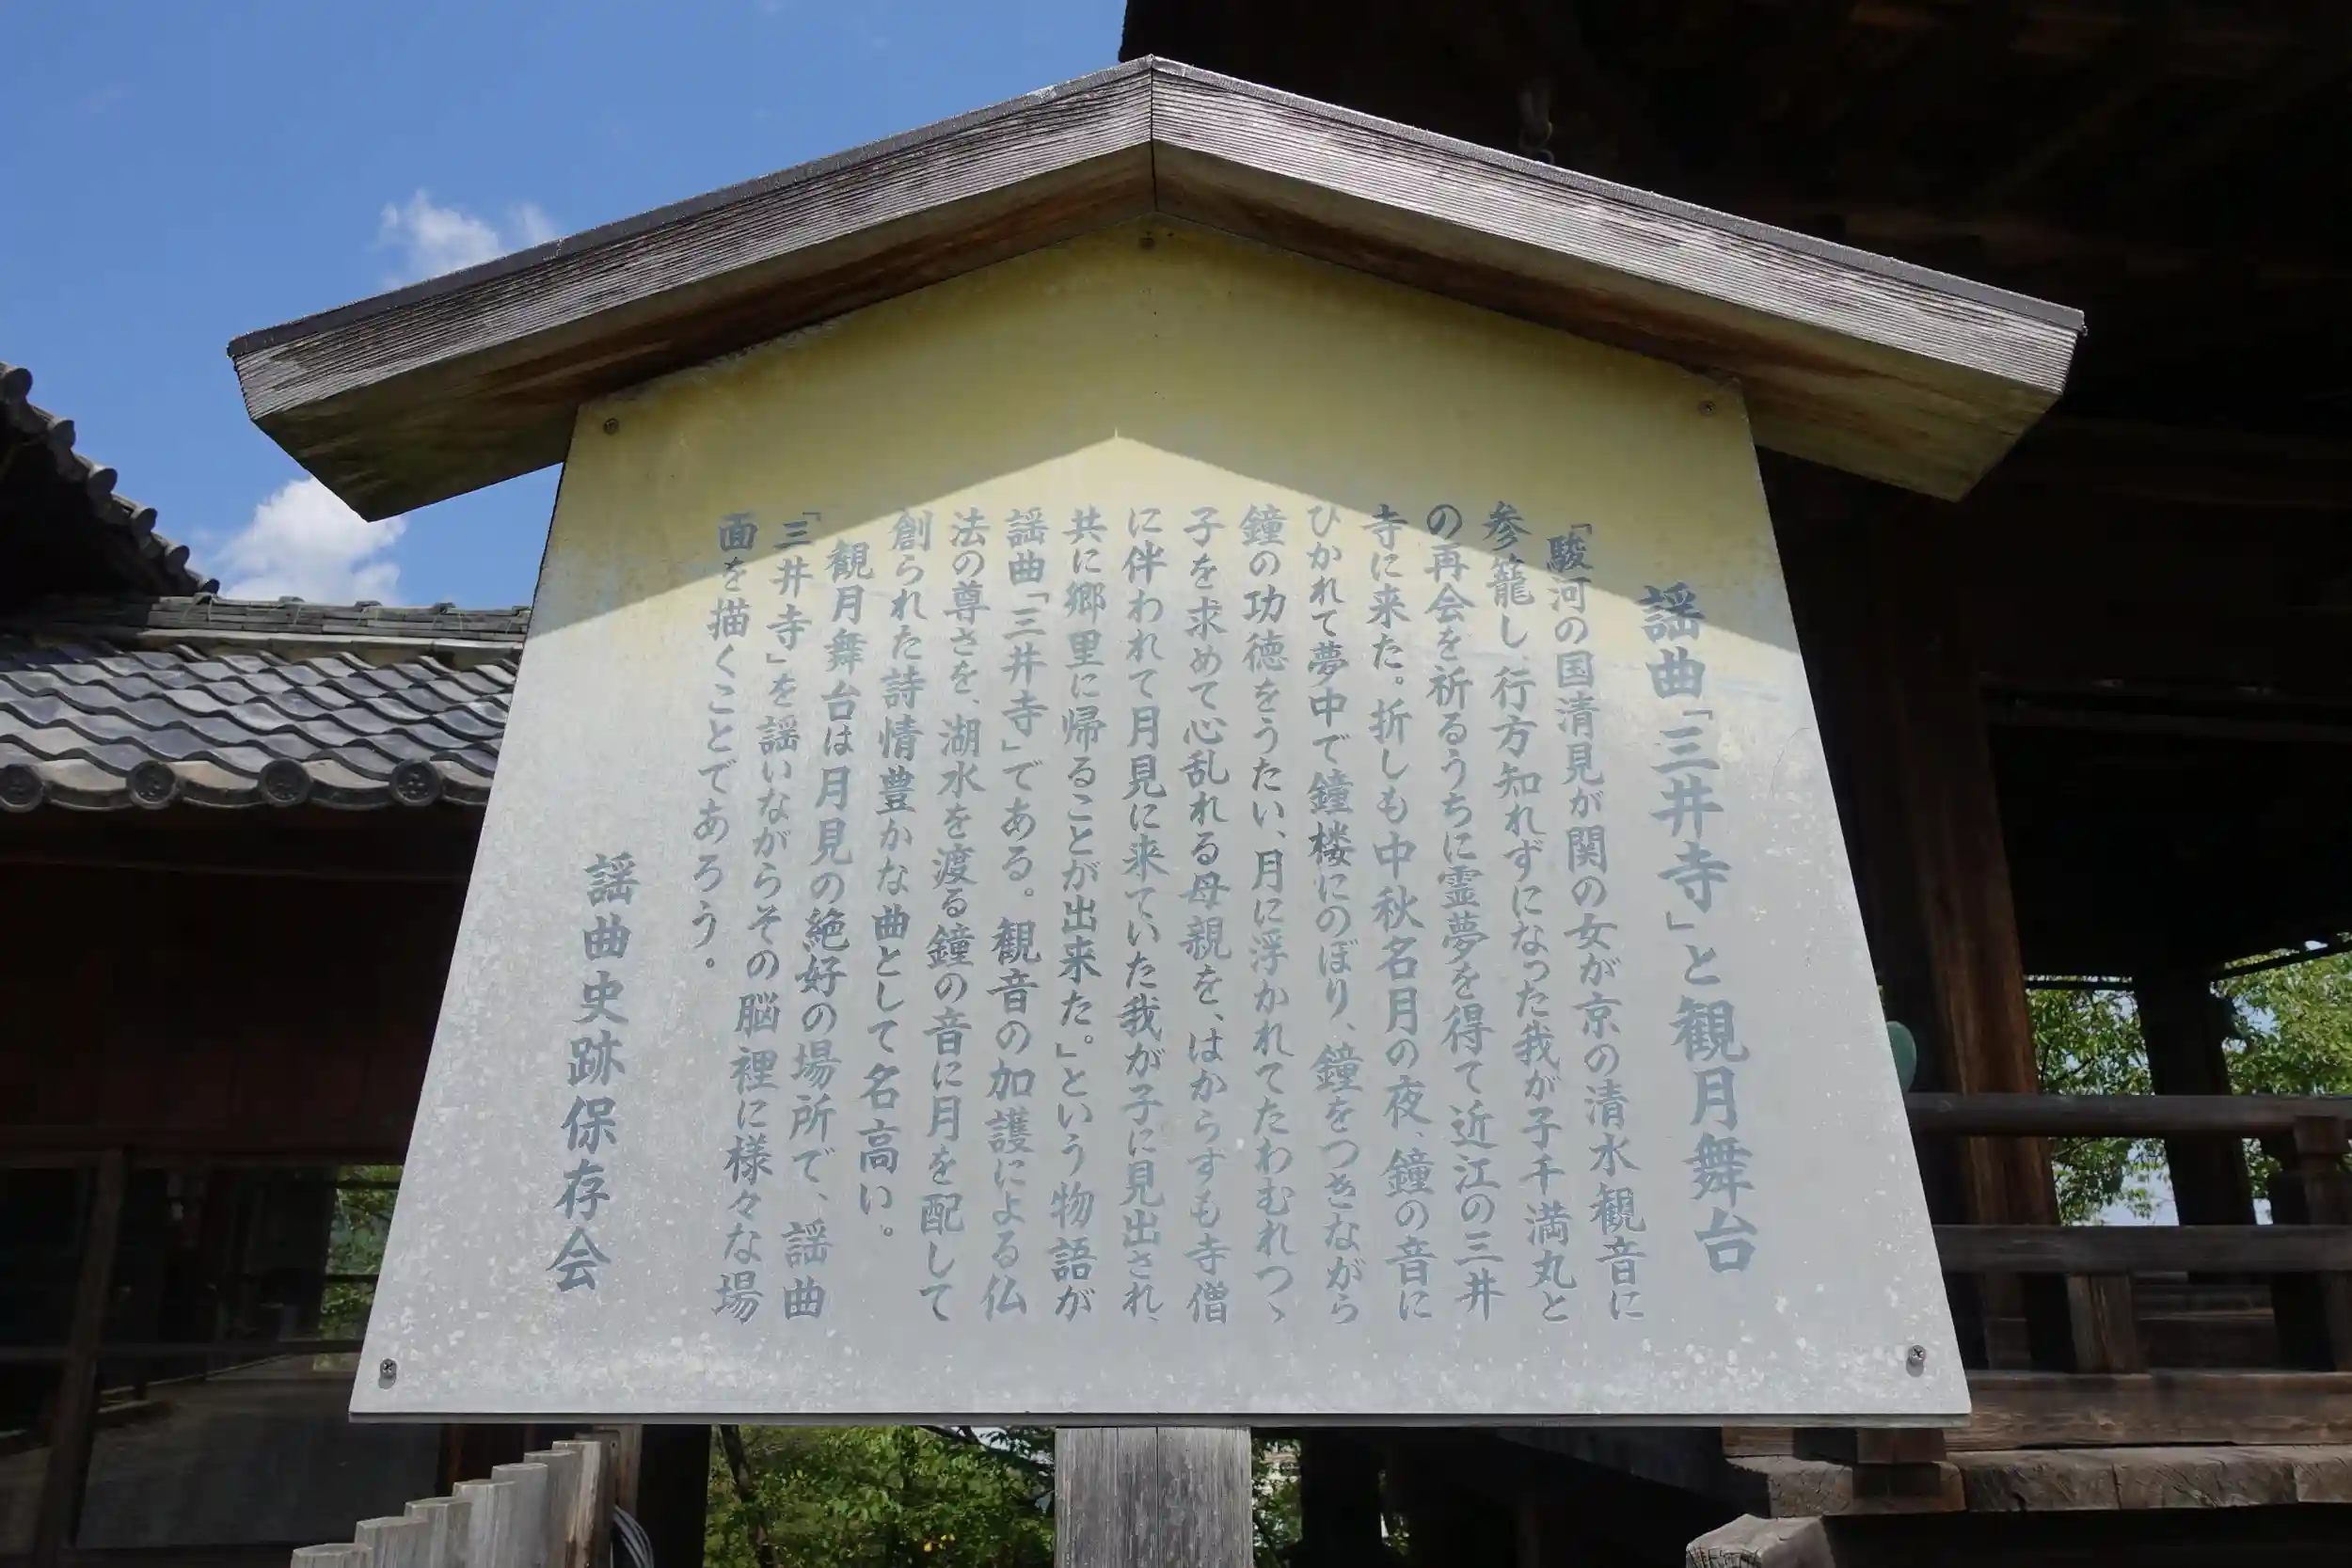 謡曲「三井寺」と観月舞台
「駿河の国清見が関の女が京の清水観音に
参籠し、行方知れずになった我が子千満丸と
の再会を祈るうちに霊夢を得て近江の三井
寺に来た。折しも中秋名月の夜、鐘の音に
ひかれて夢中で鐘楼にのぼり、鐘をつきながら
鐘の功徳をうたい、月に浮かれてたわむれつゝ
子を求めて心乱れる母親を、はからずも寺僧
に伴われて月見に来ていた我が子に見出され、
共に郷里に帰ることが出来た。」という物語が
謡曲「三井寺」である。観音の加護による仏
法の尊さを、湖水を渡る鐘の音に月を配して
創られた詩情豊かな曲として名高い。
観月舞台は月見の絶好の場所で、謡曲
「三井寺」を謡いながらその脳裡に様々な場
面を描くことであろう。
謡曲史跡保存会